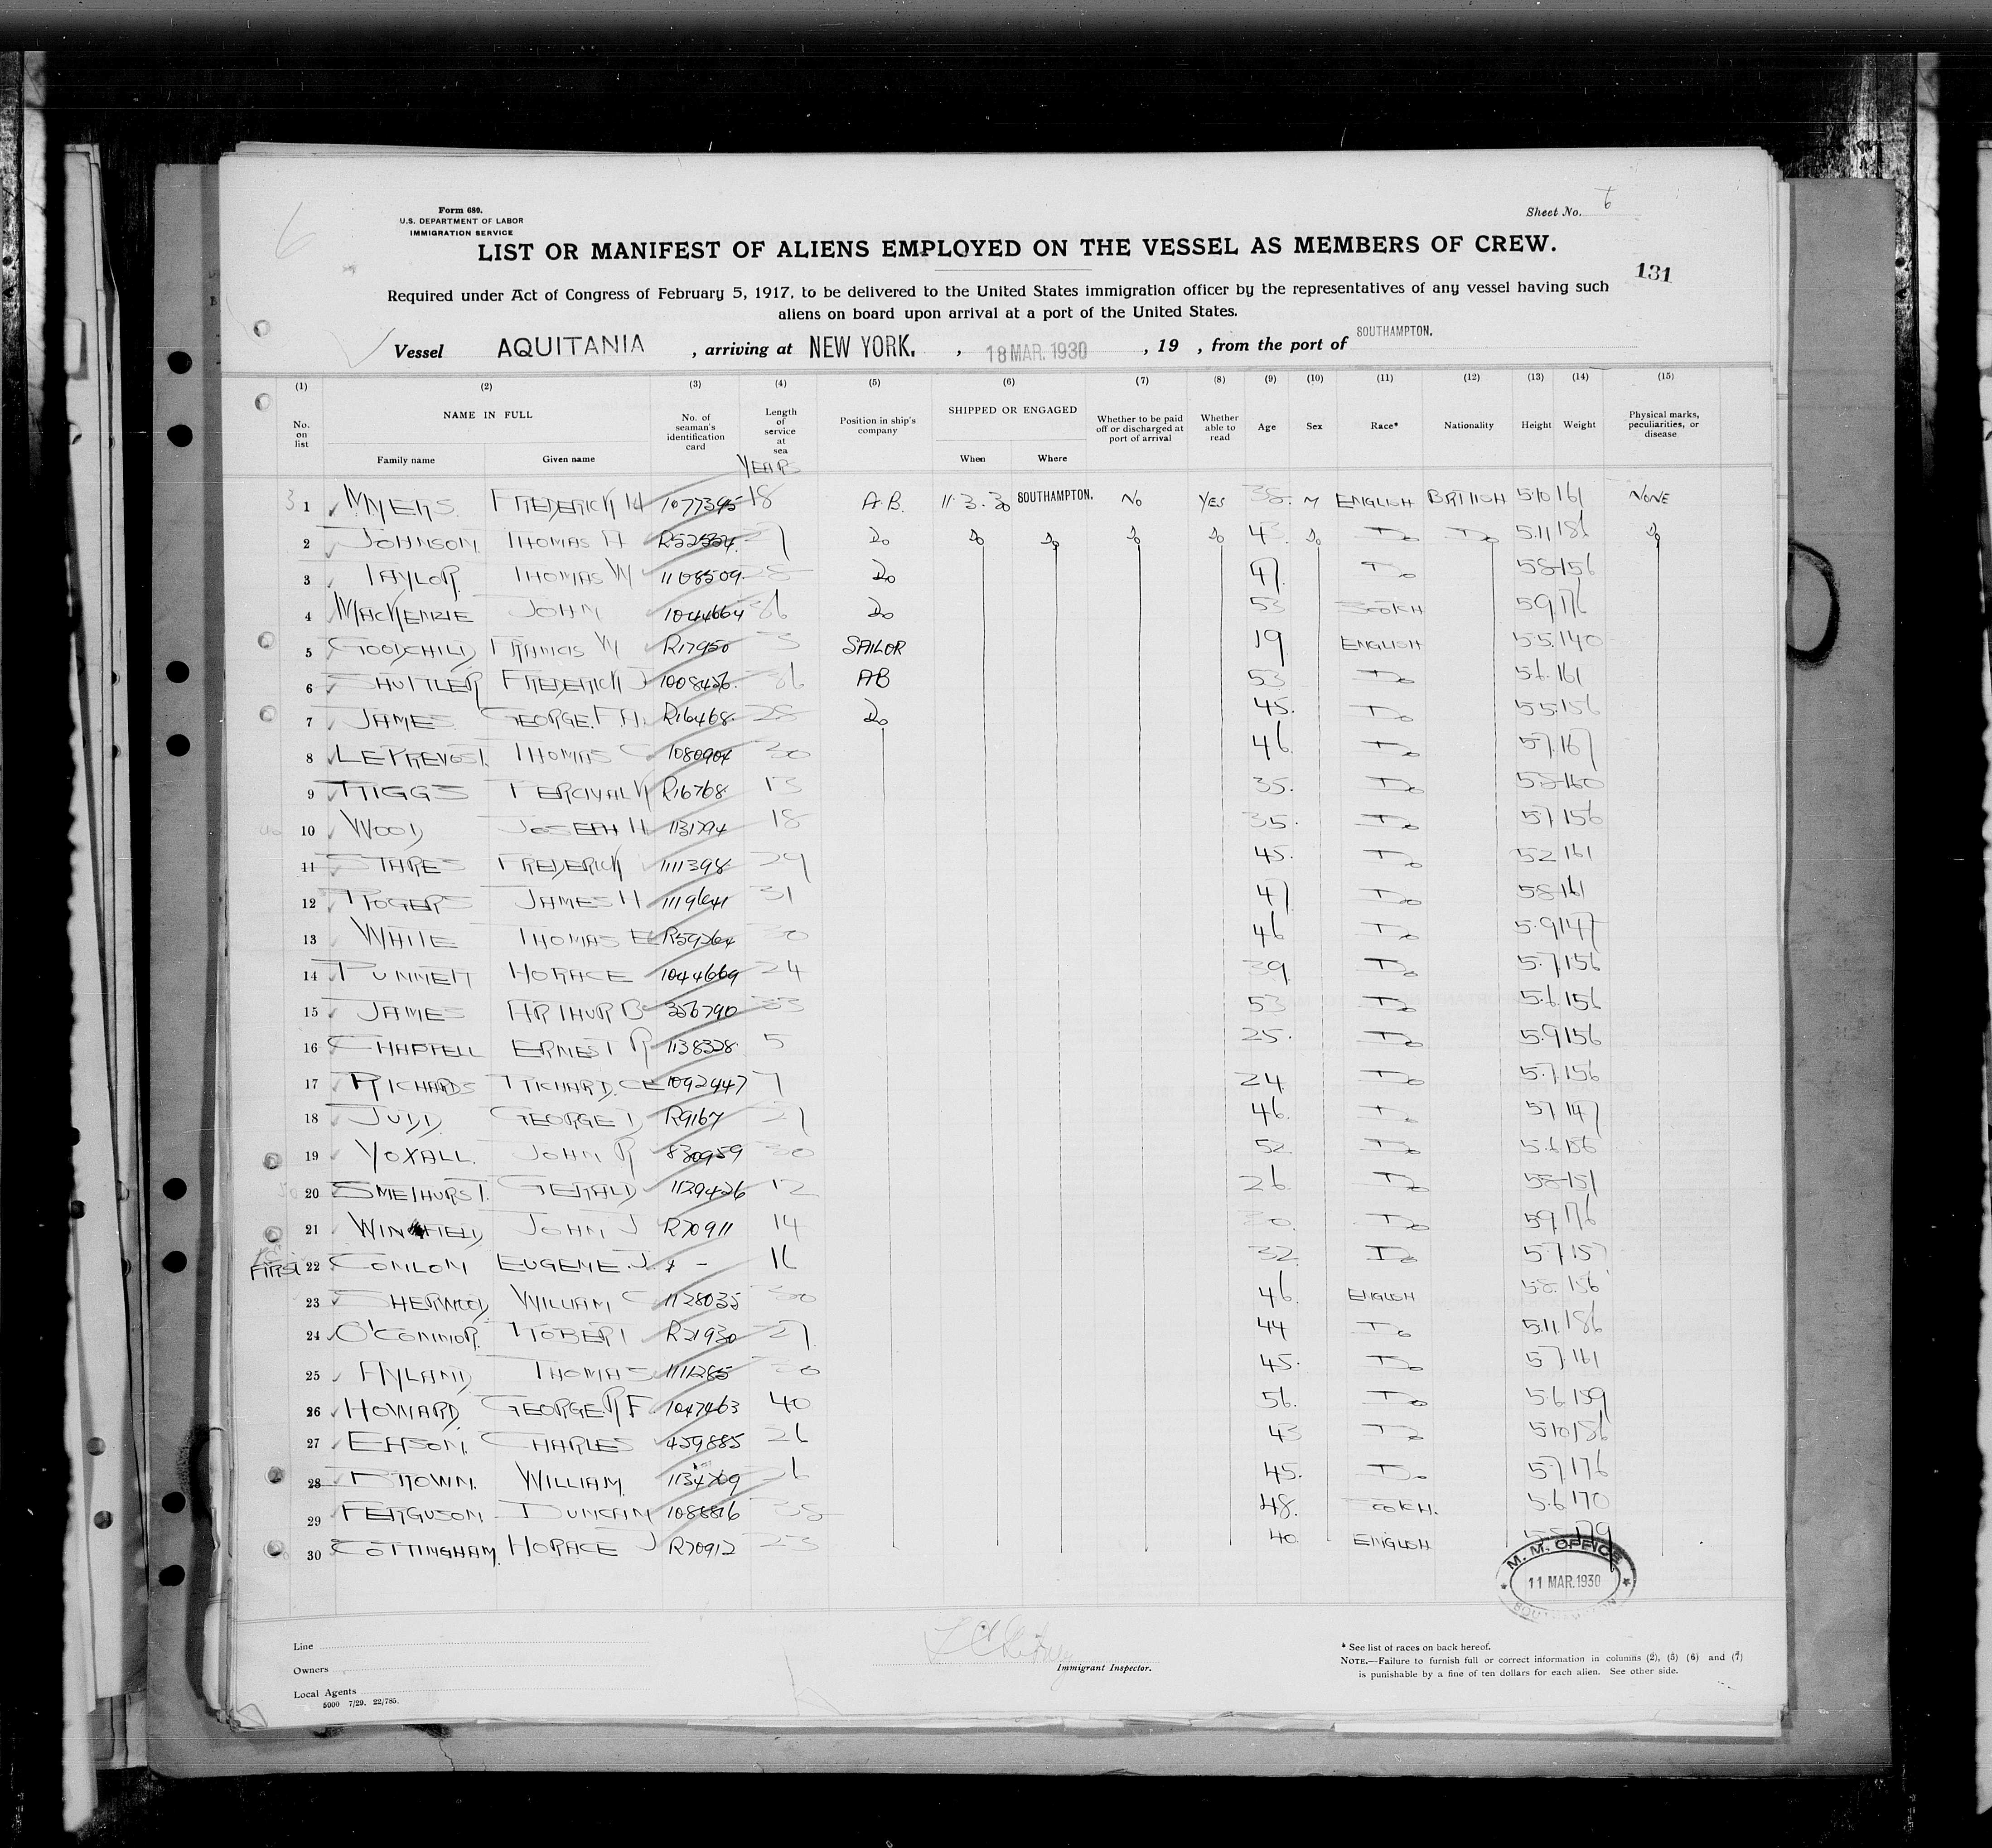 6
Form 680.
U.S. DEPARTMENT OF LABOR
IMMIGRATION SERVICE
Sheet No. 6
LIST OR MANIFEST OF ALIENS EMPLOYED ON THE VESSEL AS MEMBERS OF CREW.
131
Required under Act of Congress of February 5, 1917, to be delivered to the United States immigration officer by the representatives of any vessel having such
aliens on board upon arrival at a port of the United States.
Vessel AQUITANIA , arriving at NEW YORK. , 18 MAR. 1930 , 19 , from the port of SOUTHAMPTON.
(1) (2) (3) (4) (5) (6) (7) (8) (9) (10) (11) (12) (13) (14) (15)
No. on list NAME IN FULL Family name Given name No. of seaman's identification card Length of service at sea YEARS Position in ship's company SHIPPED OR ENGAGED When Where Whether to be paid off or discharged at port of arrival Whether able to read Age Sex Race* Nationality Height Weight Physical marks, peculiarities, or disease
1 MYERS FREDERICK H 1077395 18 A.B. 11.3.30 SOUTHAMPTON. NO YES 38. M ENGLISH BRITISH 5.10 161 NONE
2 JOHNSON THOMAS H Do Do Do Do Do 43. Do Do Do 5.11 186 Do
3 TAYLOR THOMAS W 1108509 28 Do 47. Do 5.8 156
4 MACKENZIE JOHN 1044664 36 Do 53 SCOTCH 5.9 176
5 GOODCHILD FRANCIS W R17950 3 SAILOR 19 ENGLISH 5.5 140
6 SHUTTLER FREDERICK J 1008456 36 AB 53 Do 5.6 161
7 JAMES GEORGE F.A. R16468 28 Do 45. Do 5.5 156
8 LE PREVOST THOMAS C 1080904 30 46 Do 5.7 167
9 RIGGS PERCIVAL W R16768 13 35. Do 5.8 160
10 WOOD JOSEPH H 1131794 18 35. Do 5.7 156
11 STARES FREDERICK 1111398 29 45. Do 5.2 161
12 ROGERS JAMES H 1119641 31 47 Do 5.8 161
13 WHITE THOMAS E R59264 30 46 Do 5.9 147
14 PUNNETT HORACE 1044669 24 39. Do 5.7 156
15 JAMES ARTHUR B 356790 33 53 Do 5.6 156
16 CHAPPELL ERNEST R 1138328 5 25. Do 5.9 156
17 RICHARDS RICHARD. C E 1092447 7 24 Do 5.7 156
18 JUDD GEORGE D R9167 27 46. Do 5.7 147
19 YOXALL JOHN R 830959 30 52. Do 5.6 156
20 SMETHURST. GERALD 1129426 12 26. Do 5.8 151
21 WINGFIELD JOHN J R70911 14 30. Do 5.9 176
FIRST 22 CONLON EUGENE J. - 16 32 Do 5.7 157
23 SHERWOOD WILLIAM C 1128035 30 46. ENGLISH 5.8 156
24 O'CONNOR ROBERT R21930 27. 44 Do 5.11 186
25 HYLAND THOMAS 1111285 30 45. Do 5.7 161
26 HOWARD GEORGE R F. 1047463 40 56. Do 5.6 159
27 EPSOM CHARLES 459885 26 43 Do 5.10 186
28 BROWN. WILLIAM. 26 45. Do 5.7 176
29 FERGUSON DUNCAN 1088816 48. SCOTCH. 5.6 170
30 COTTINGHAM HORACE J R70912 23 40. ENGLISH 179
M. M. OFFICE
11 MAR. 1930
SOUTHAMPTON
Line
Owners
Local Agents
5000 7/29. 22/785.
Immigrant Inspector.
* See list of races on back hereof.
NOTE.—Failure to furnish full or correct information in columns (2), (5) (6) and (7)
is punishable by a fine of ten dollars for each alien. See other side.